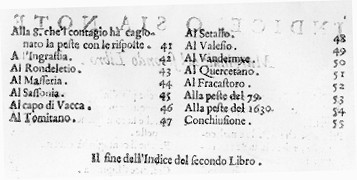 Alla 8. che'l contagio hà cagio
nato la peste con le risposte. 41
A l'Ingrassia. 42
Al Rondeletio. 43
Al Massaria. 44
Al Sassonia. 45
Al capo di Vacca. 46
Al Tomitano. 47
Al Setallo. 48
Al Valesio. 49
Al Vandermye. 50
Al Quercetano. 51
Al Fracastoro. 52
Alla peste del 79. 53
Alla peste del 1630. 54
Conchiusione. 55
Il fine dall'Indice del secondo Libro.